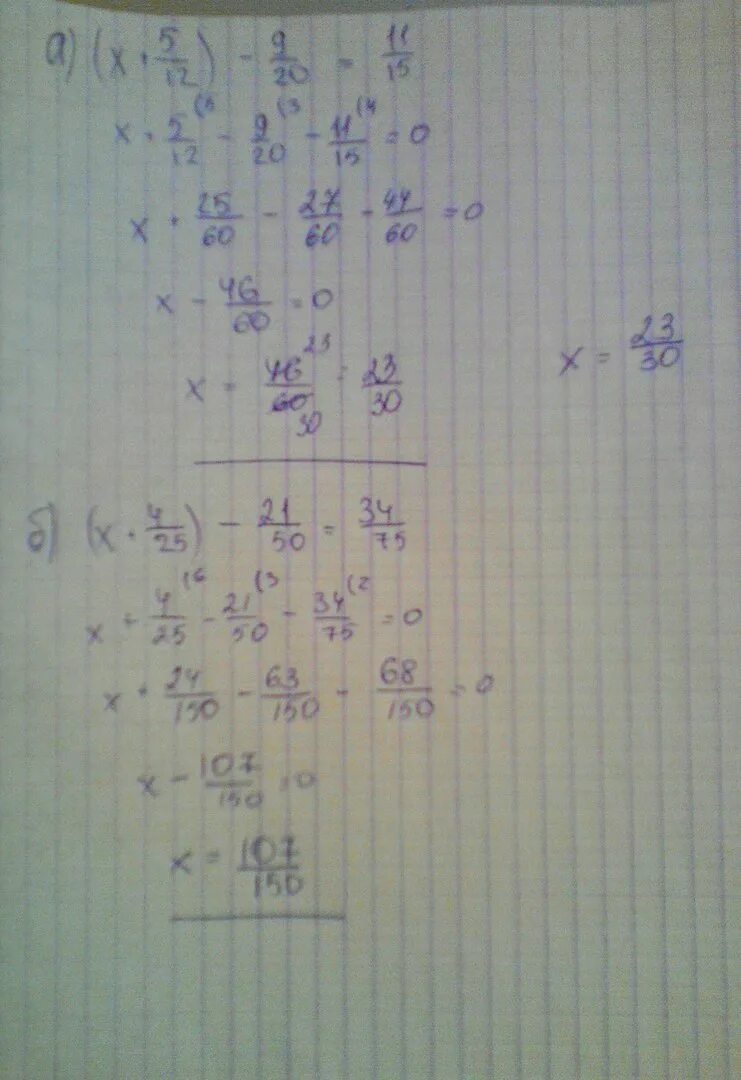 а) (x + 5/12) - 9/20 = 11/15
x + 5/12 (5 - 9/20 (3 - 11/15 (4 = 0
x + 25/60 - 27/60 - 44/60 = 0
x - 46/60 = 0
x = 46/60 23 30 = 23/30
x = 23/30
б) (x + 4/25) - 21/50 = 34/75
x + 4/25 (6 - 21/50 (3 - 34/75 (2 = 0
x + 24/150 - 63/150 - 68/150 = 0
x - 107/150 = 0
x = 107/150